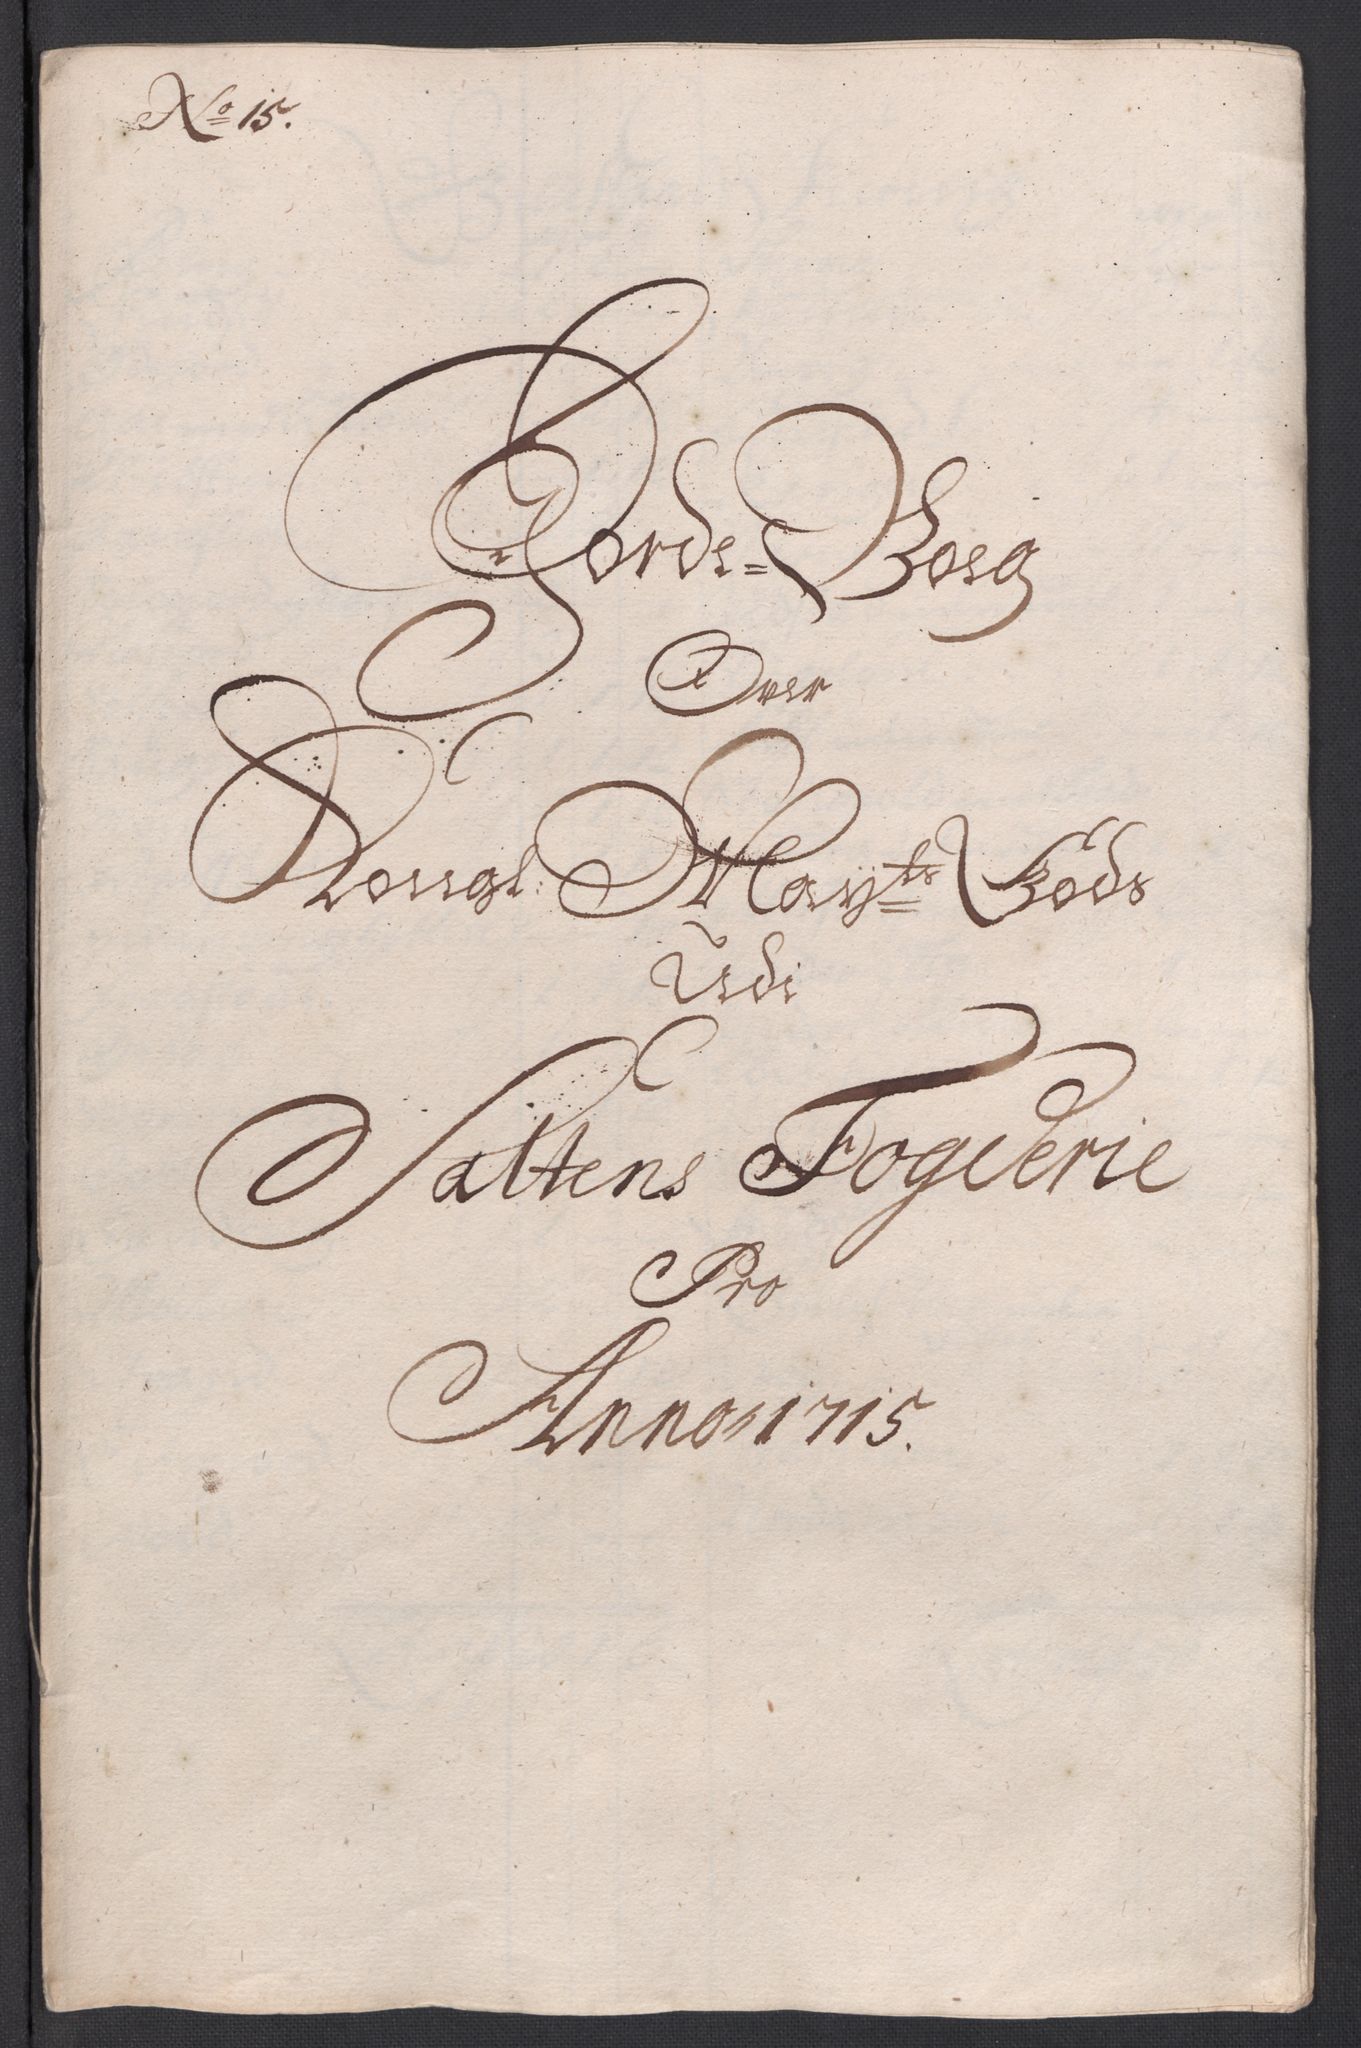 No 15.
Jorde-Boeg
Over
Kongl: Mayts Gods
Udi
Saltens Fogderie
Pro
Anno 1715.